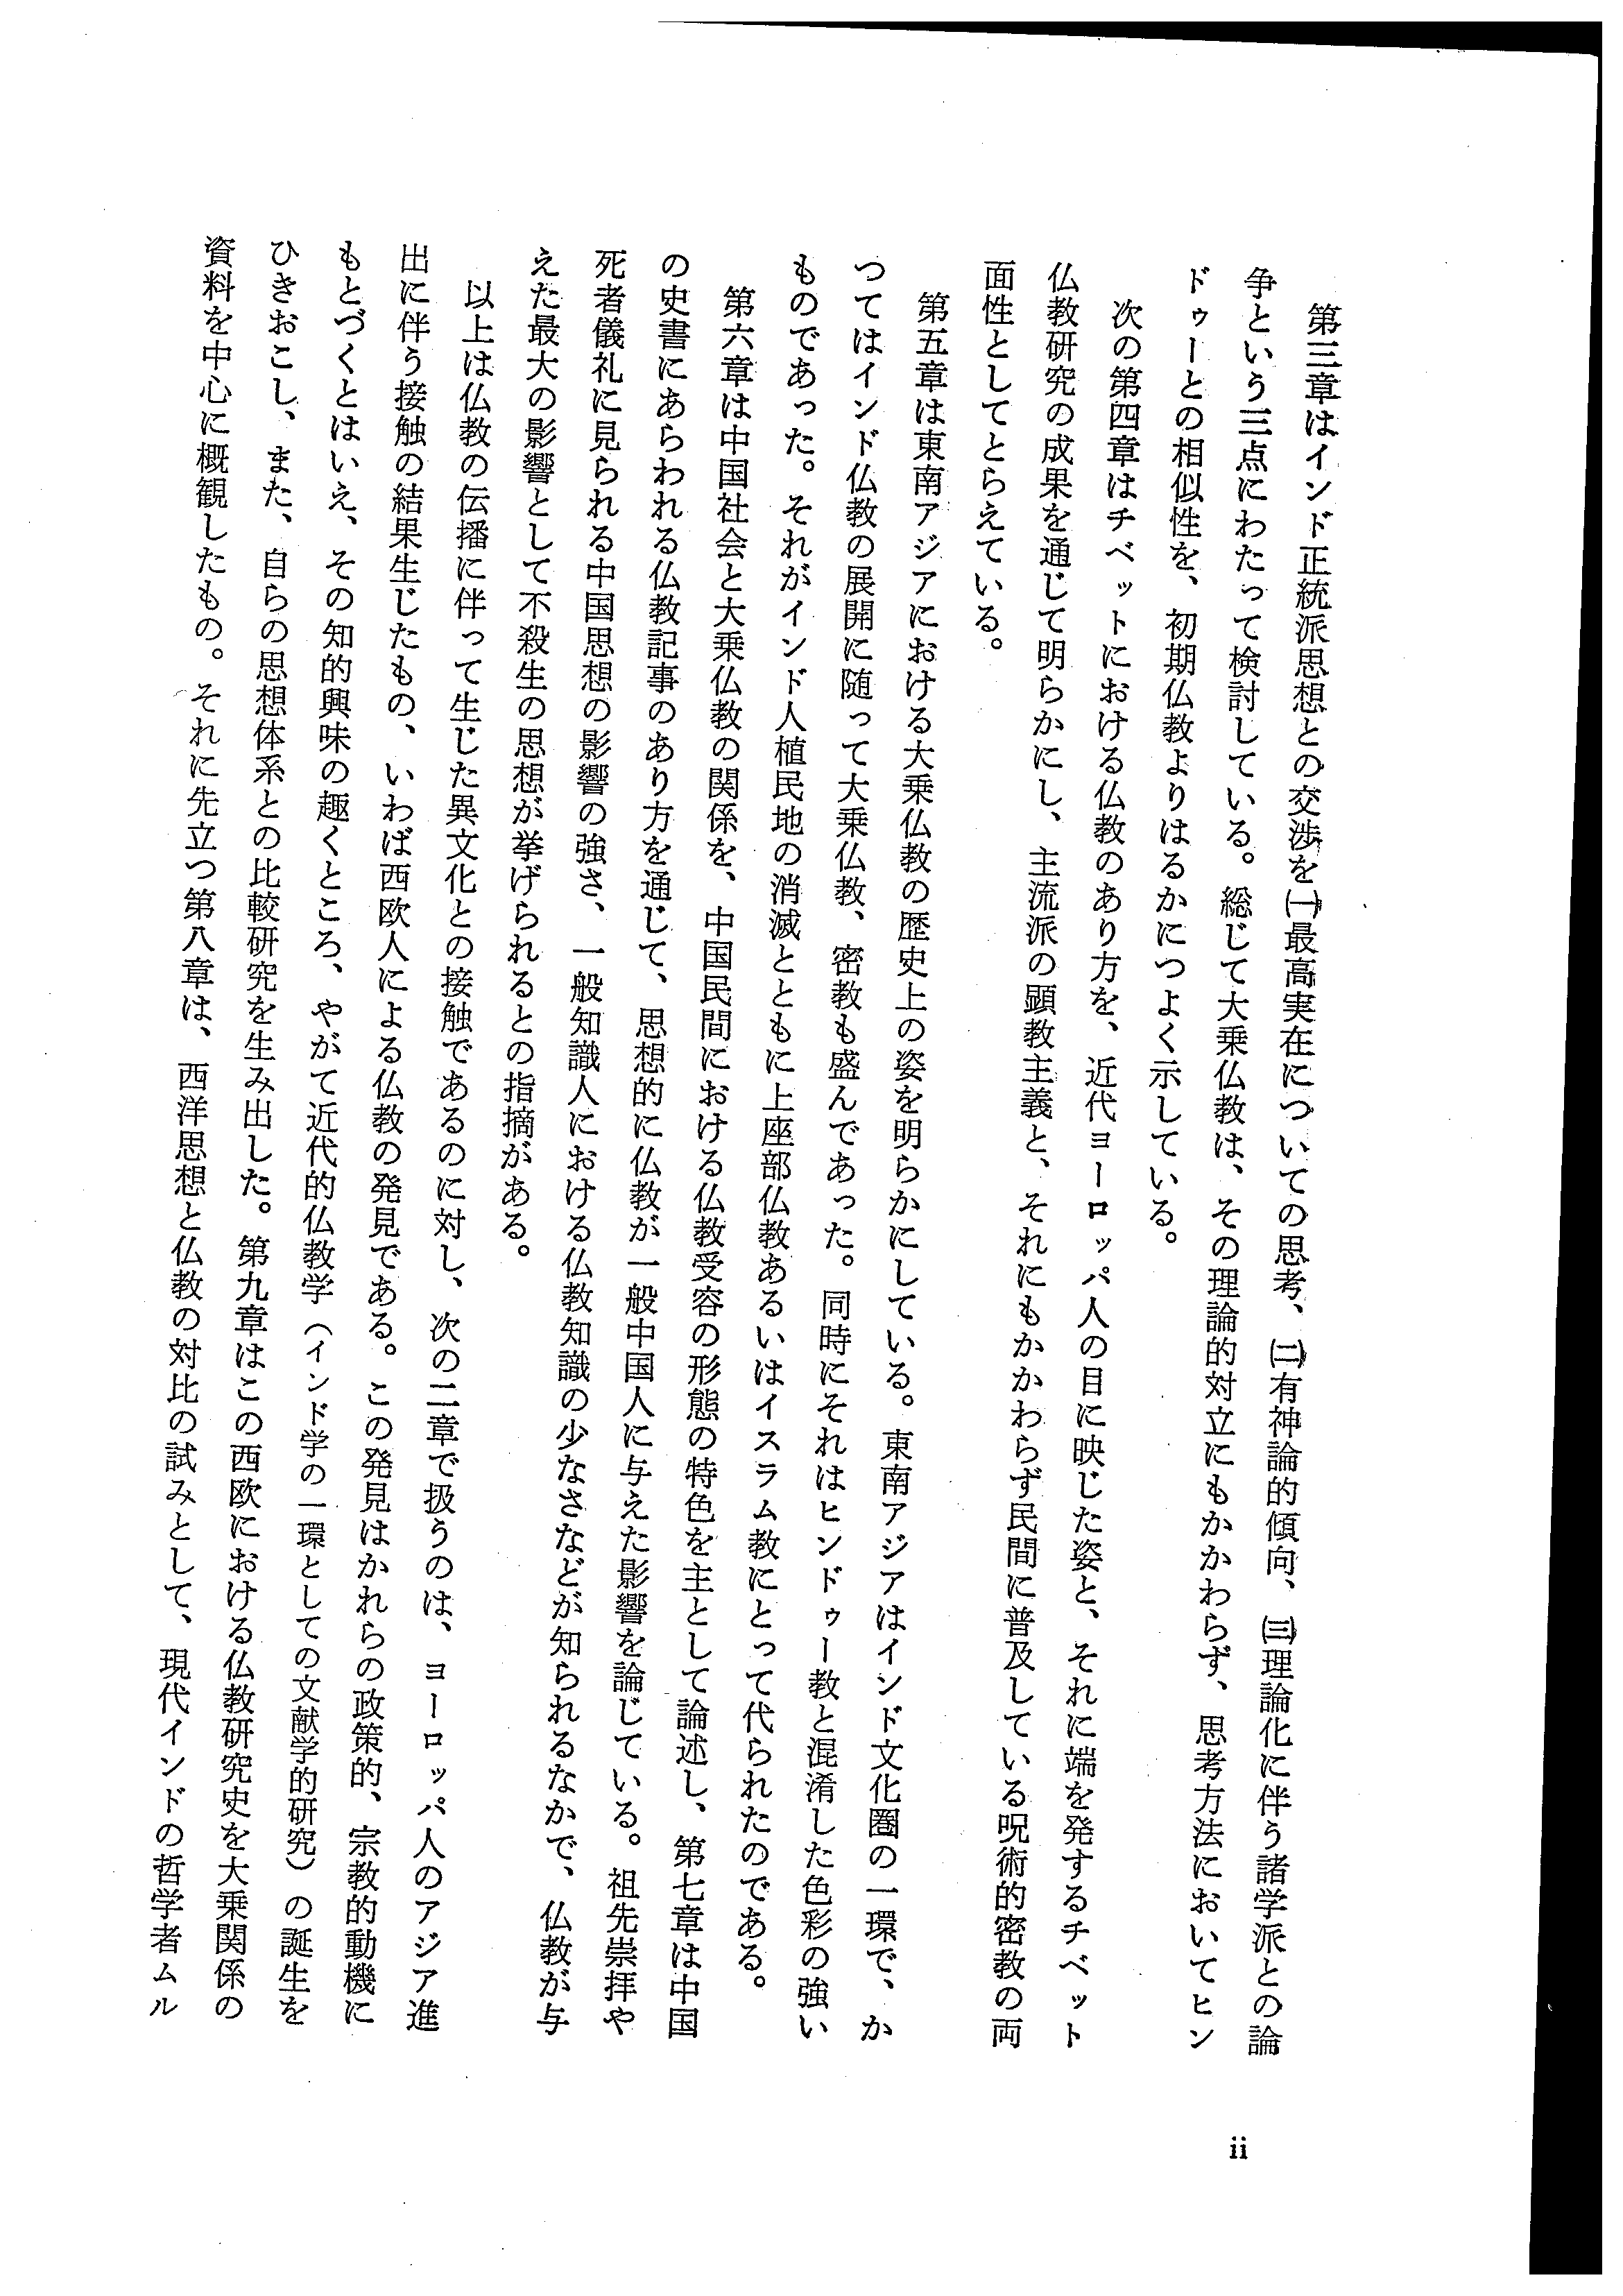 第三章はインド正統派思想との交渉を㈠最高実在についての思考、㈡有神論的傾向、㈢理論化に伴う諸学派との論
争という三点にわたって検討している。総じて大乗仏教は、その理論的対立にもかかわらず、思考方法においてヒン
ドゥーとの相似性を、初期仏教よりはるかにつよく示している。
次の第四章はチベットにおける仏教のあり方を、近代ヨーロッパ人の目に映じた姿と、それに端を発するチベット
仏教研究の成果を通じて明らかにし、主流派の顕教主義と、それにもかかわらず民間に普及している呪術的密教の両
面性としてとらえている。
第五章は東南アジアにおける大乗仏教の歴史上の姿を明らかにしている。東南アジアはインド文化圏の一環で、か
つてはインド仏教の展開に随って大乗仏教、密教も盛んであった。同時にそれはヒンドゥー教と混淆した色彩の強い
ものであった。それがインド人植民地の消滅とともに上座部仏教あるいはイスラム教にとって代られたのである。
第六章は中国社会と大乗仏教の関係を、中国民間における仏教受容の形態の特色を主として論述し、第七章は中国
の史書にあらわれる仏教記事のあり方を通じて、思想的に仏教が一般中国人に与えた影響を論じている。祖先崇拝や
死者儀礼に見られる中国思想の影響の強さ、一般知識人における仏教知識の少なさなどが知られるなかで、仏教が与
えた最大の影響として不殺生の思想が挙げられるとの指摘がある。
以上は仏教の伝播に伴って生じた異文化との接触であるのに対し、次の二章で扱うのは、ヨーロッパ人のアジア進
出に伴う接触の結果生じたもの、いわば西欧人による仏教の発見である。この発見はかれらの政策的、宗教的動機に
もとづくとはいえ、その知的興味の趣くところ、やがて近代的仏教学（インド学の一環としての文献学的研究）の誕生を
ひきおこし、また、自らの思想体系との比較研究を生み出した。第九章はこの西欧における仏教研究史を大乗関係の
資料を中心に概観したもの。それに先立つ第八章は、西洋思想と仏教の対比の試みとして、現代インドの哲学者ムル
ii